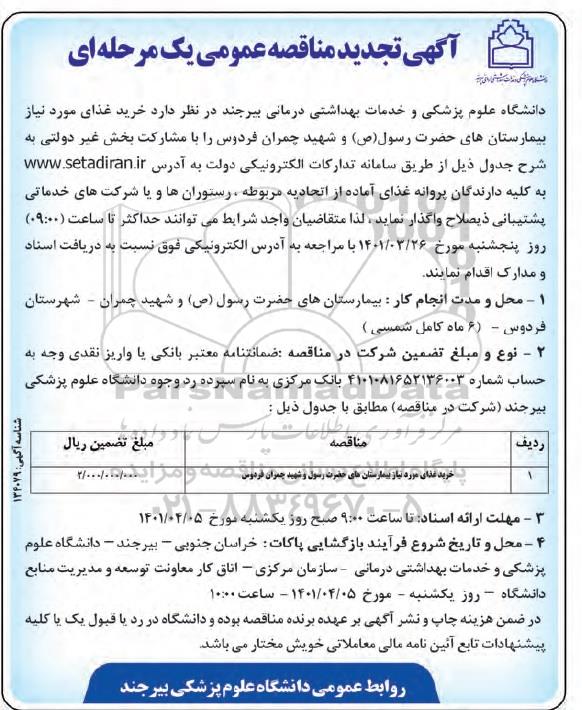 آگهی تجدید مناقصه عمومی یک مرحله ای
دانشگاه علوم پزشکی و خدمات بهداشتی درمانی بیرجند در نظر دارد خرید غذای مورد نیاز
بیمارستان های حضرت رسول(ص) و شهید چمران فردوس را با مشارکت بخش غیر دولتی به
شرح جدول ذیل از طریق سامانه تدارکات الکترونیکی دولت به آدرس www.setadiran.ir
به کلیه دارندگان پروانه غذای آماده از اتحادیه مربوطه ، رستوران ها و یا شرکت های خدماتی
پشتیبانی ذیصلاح واگذار نماید ، لذا متقاضیان واجد شرایط می توانند حداکثر تا ساعت (۰۹:۰۰)
روز پنجشنبه مورخ ۱۴۰۱/۰۳/۲۶ با مراجعه به آدرس الکترونیکی فوق نسبت به دریافت اسناد
و مدارک اقدام نمایند.
۱ – محل و مدت انجام کار : بیمارستان های حضرت رسول (ص) و شهید چمران – شهرستان
فردوس – (۶ ماه کامل شمسی )
۲ – نوع و مبلغ تضمین شرکت در مناقصه :ضمانتنامه معتبر بانکی یا واریز نقدی وجه به
حساب شماره ۴۱۰۱۰۸۱۶۵۲۱۳۶۰۰۳ بانک مرکزی به نام سپرده رد وجوه دانشگاه علوم پزشکی
بیرجند (شرکت در مناقصه) مطابق با جدول ذیل :
ردیف مناقصه مبلغ تضمین ریال
۱ خرید غذای مورد نیاز بیمارستان های حضرت رسول و شهید چمران فردوس ۲/۰۰۰/۰۰۰/۰۰۰
۳ – مهلت ارائه اسناد: تا ساعت ۹:۰۰ صبح روز یکشنبه مورخ ۱۴۰۱/۰۴/۰۵
۴ – محل و تاریخ شروع فرآیند بازگشایی پاکات : خراسان جنوبی – بیرجند – دانشگاه علوم
پزشکی و خدمات بهداشتی درمانی – سازمان مرکزی – اتاق کار معاونت توسعه و مدیریت منابع
دانشگاه – روز یکشنبه – مورخ ۱۴۰۱/۰۴/۰۵ – ساعت ۱۰:۰۰
در ضمن هزینه چاپ و نشر آگهی بر عهده برنده مناقصه بوده و دانشگاه در رد یا قبول یک یا کلیه
پیشنهادات تابع آئین نامه مالی معاملاتی خویش مختار می باشد.
روابط عمومی دانشگاه علوم پزشکی بیرجند
شناسه آگهی: ۱۳۴۰۷۹
ParsNamadData
۰۲۱-۸۸۳۴۹۶۷۰-۵